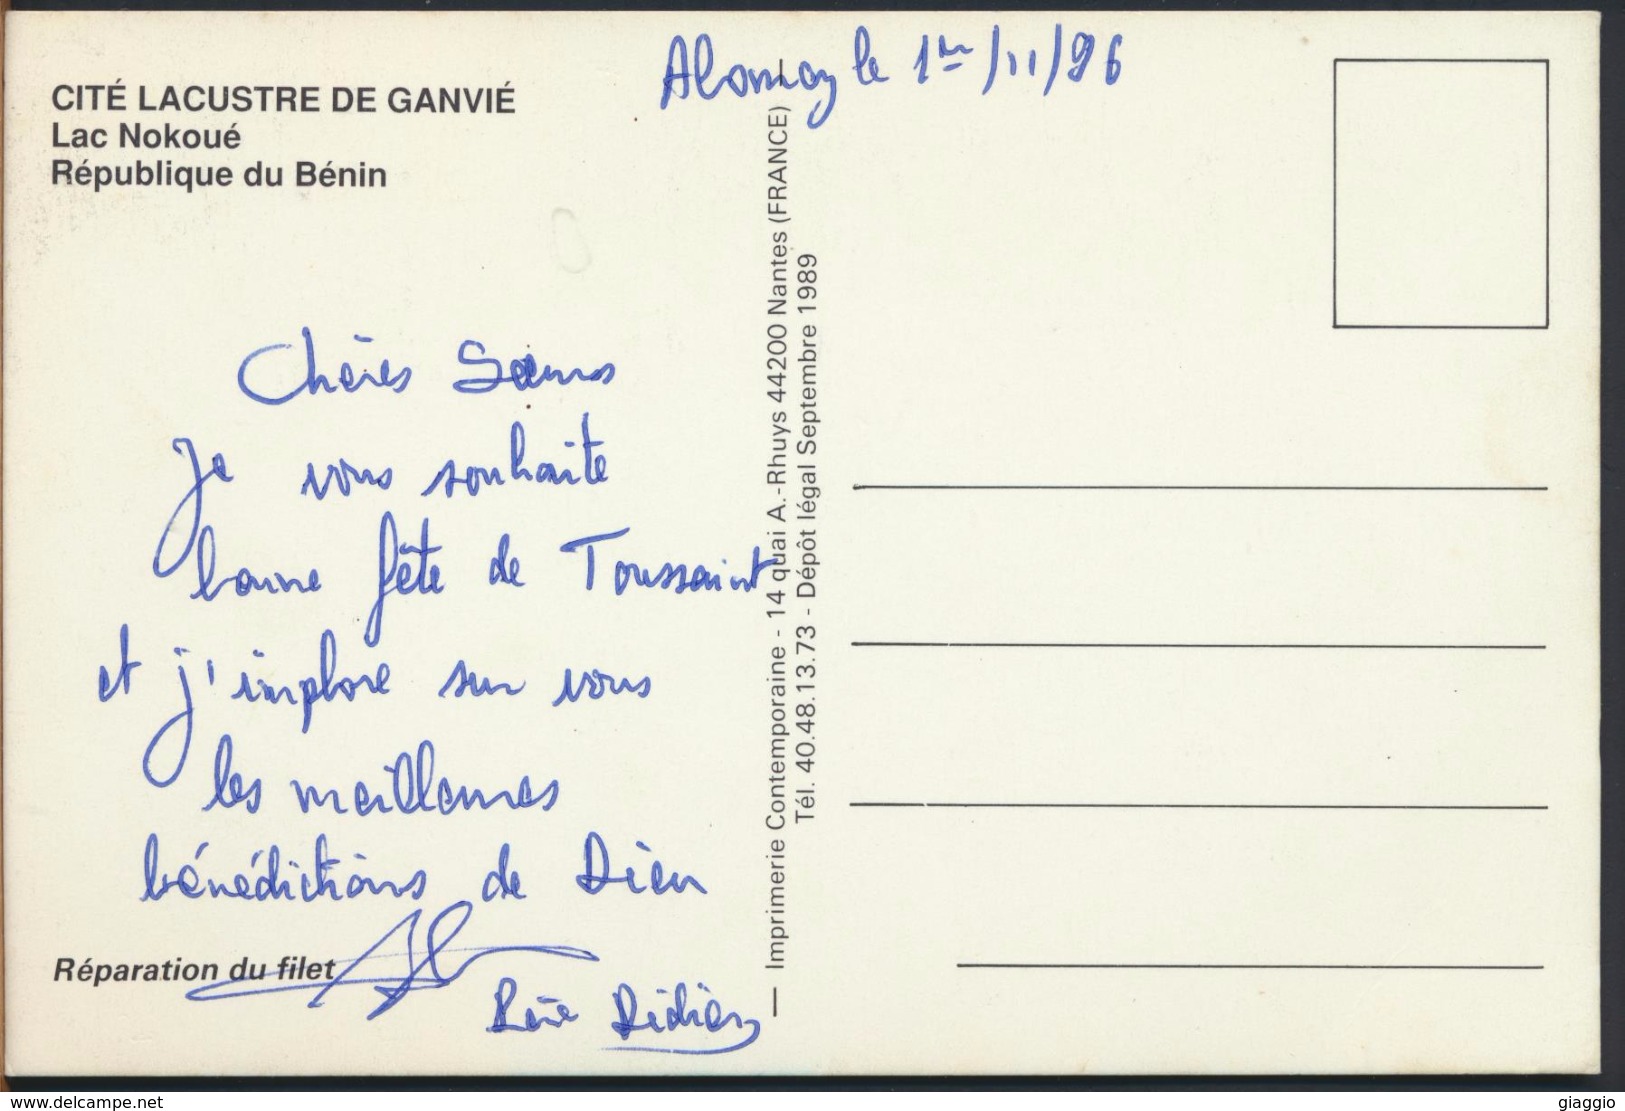 CITÉ LACUSTRE DE GANVIÉ
Lac Nokoué
République du Bénin
le 1er/11/96
Chères Sœurs
Je vous souhaite
bonne fête de Toussaint
et j'implore sur vous
les meilleures
bénédictions de Dieu
Réparation du filet
Père Didier
— Imprimerie Contemporaine - 14 quai A.-Rhuys 44200 Nantes (FRANCE) —
Tél. 40.48.13.73 - Dépôt légal Septembre 1989
www.delcampe.net
giaggio